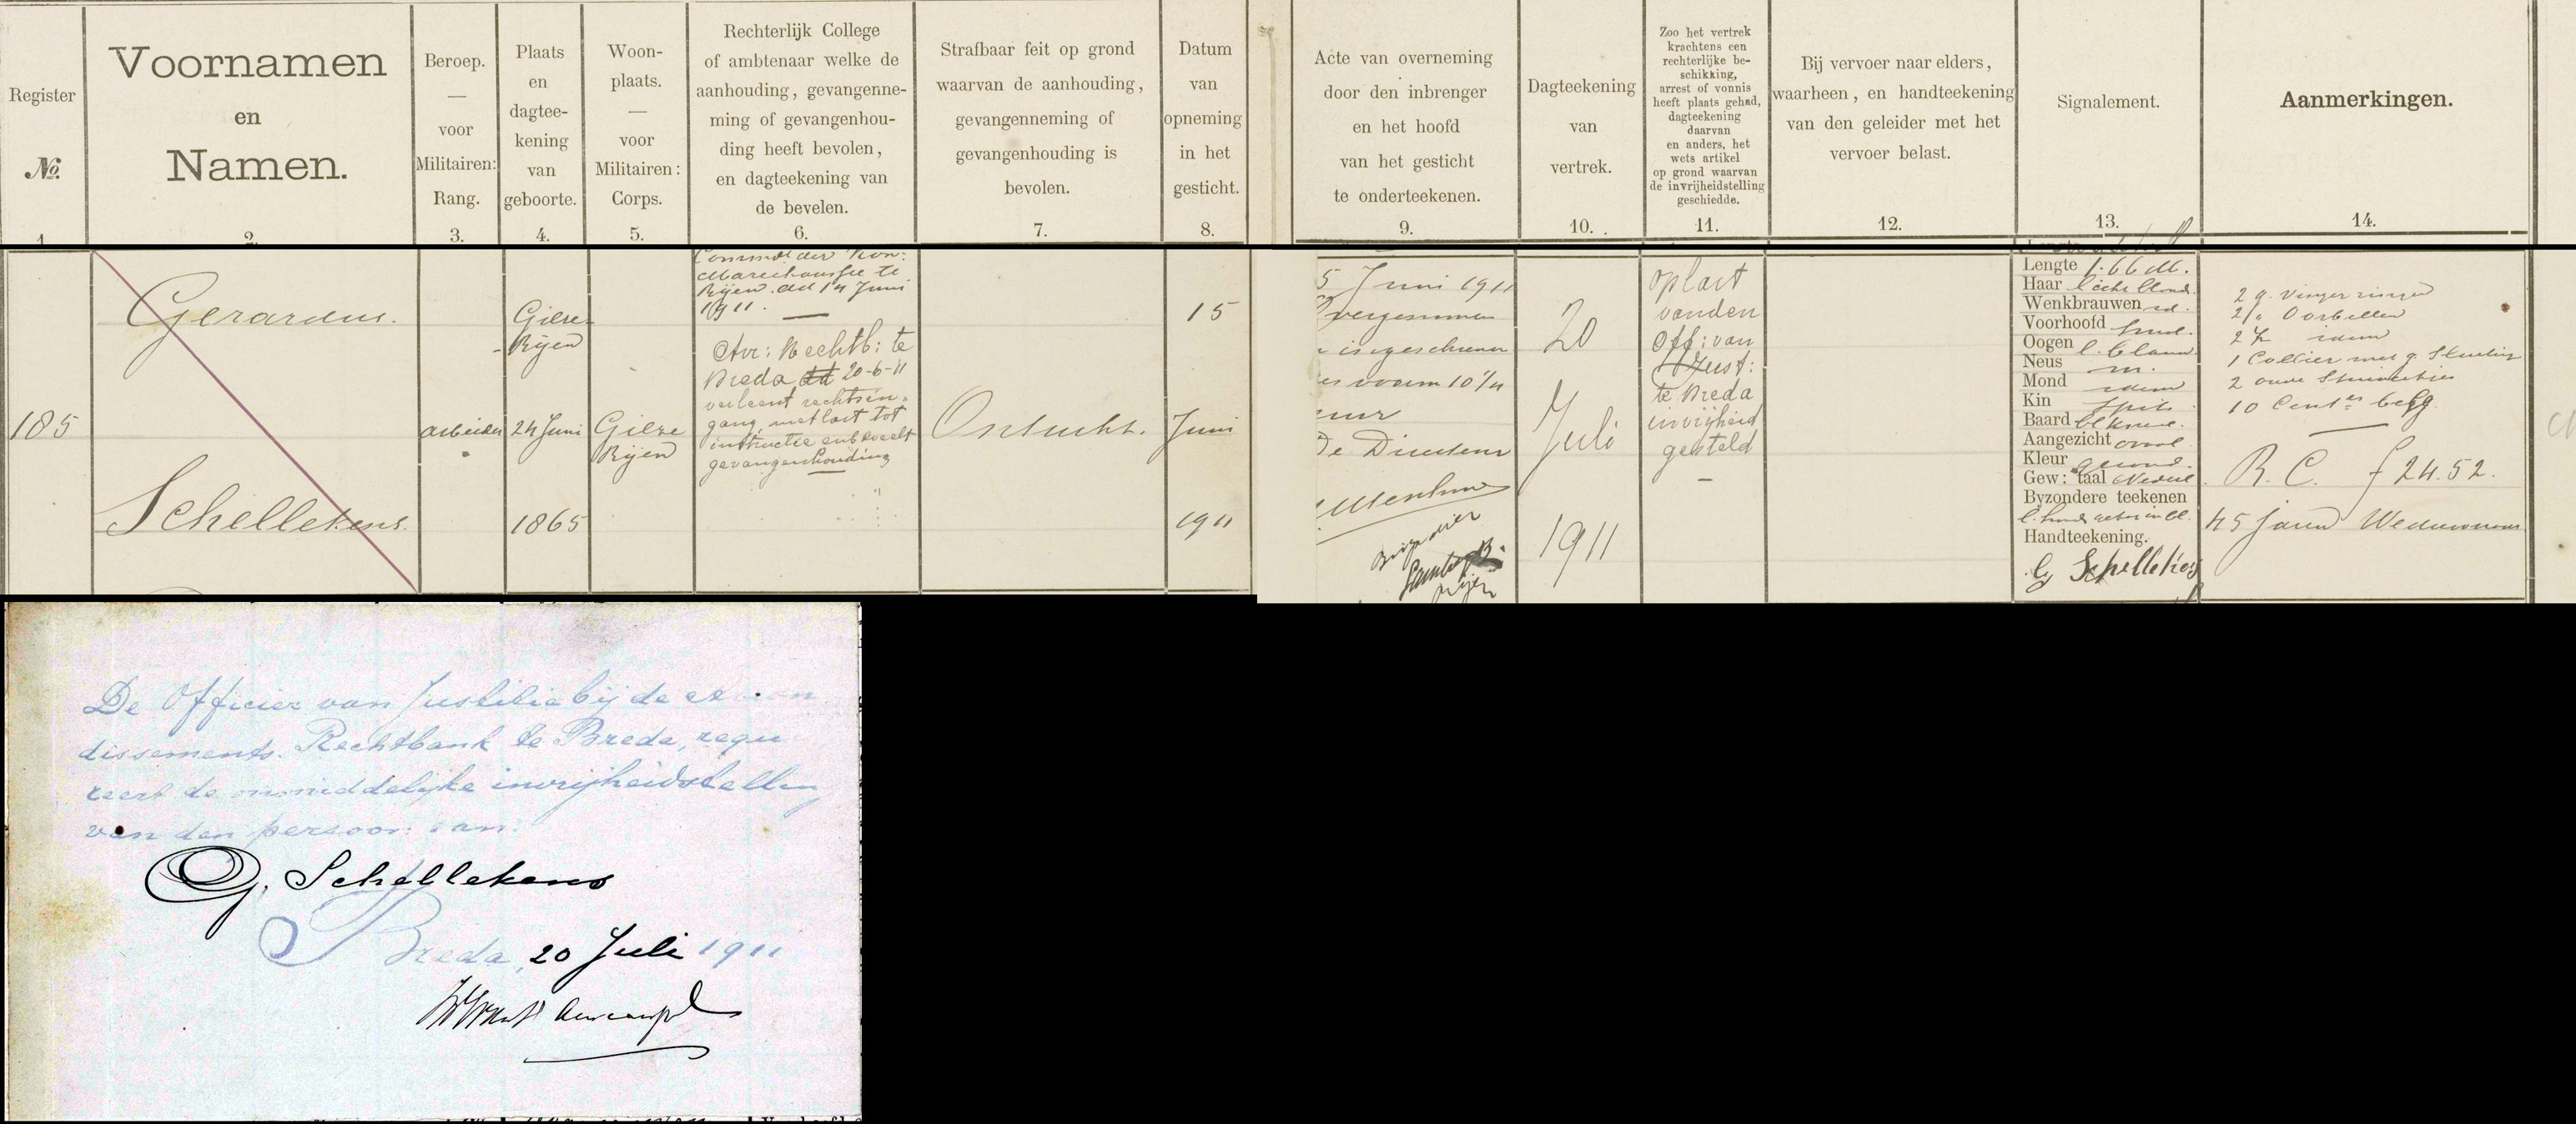 Register
No.
1
Voornamen
en
Namen.
2.
Beroep.
—
voor
Militairen:
Rang.
3.
Plaats
en
dagtee-
kening
van
geboorte.
4.
Woon-
plaats.
—
voor
Militairen:
Corps.
5.
Rechterlijk College
of ambtenaar welke de
aanhouding, gevangenne-
ming of gevangenhou-
ding heeft bevolen,
en dagteekening van
de bevelen.
6.
Strafbaar feit op grond
waarvan de aanhouding,
gevangenneming of
gevangenhouding is
bevolen.
7.
Datum
van
opneming
in het
gesticht.
8.
Acte van overneming
door den inbrenger
en het hoofd
van het gesticht
te onderteekenen.
9.
Dagteekening
van
vertrek.
10.
Zoo het vertrek
krachtens een
rechterlijke be-
schikking,
arrest of vonnis
heeft plaats gehad,
dagteekening
daarvan
en anders, het
wets artikel
op grond waarvan
de invrijheidstelling
geschiedde.
11.
Bij vervoer naar elders,
waarheen, en handteekening
van den geleider met het
vervoer belast.
12.
Signalement.
13.
Aanmerkingen.
14.
185
Gerardus.
Schellekens.
arbeider
Gilze-
Rijen
24 Juni
1865
Gilze
Rijen
Commdt der Kon:
Marechaussee te
Rijen dd 14 Juni
1911. —
Arr: Rechtb: te
Breda dd 20-6-11
verleent rechtsin-
gang, met last tot
instructie en beveelt
gevangenhouding
Ontucht.
15
Juni
1911
5 Juni 1911
Overgenomen
ingeschreven
voorm 10¾
uur
De Directeur
Brigadier
Rijen
20
Juli
1911
op last
van den
Off: van
Just:
te Breda
in vrijheid
gesteld
—
Lengte 1.66 M.
Haar licht blond
Wenkbrauwen id.
Voorhoofd rond.
Oogen l. blauw
Neus m.
Mond idem
Kin spits
Baard bl knevel.
Aangezicht ovaal
Kleur gezond.
Gew: taal Nederl
Byzondere teekenen
Handteekening.
G Schellekens
2 g. vingerringen
2 „ Oorbellen
2 z idem
1 Collier met g. Sluiting
2 oude
10 Cents belg
R. C. f 24.52.
45 jaren Weduwnaar
De Officier van Justitie bij de arron
dissements. Rechtbank te Breda, requi
reert de onmiddelijke invrijheidstelling
van den persoon van:
G. Schellekens
Breda, 20 Juli 1911